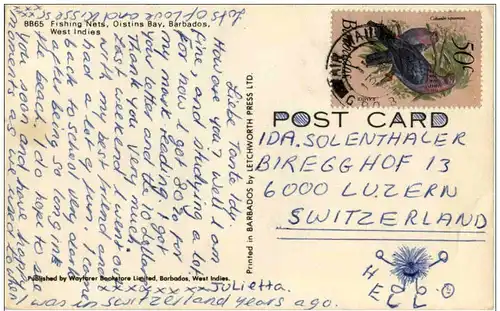 BB65 Fishing Nets, Oistins Bay, Barbados,
West Indies
Lots of Love and Kisses
Liebe Tante Idi,
How are you? Well I am
fine and studying a lot
for now I got 80% for
my mark reading. I got
your letter and the 10 dollars
Thank you very much.
Last weekend I went out
with my best friend and
had a lot of fun. I came
back to school very dark
after being so long in
the beach. I do hope to see
you soon and have happy
moments as we used to when
I was in Switzerland years ago.
xxxxxxxx Julietta.
Published by Wayfarer Bookstore Limited, Barbados, West Indies.
Printed in BARBADOS by LETCHWORTH PRESS LTD.
Barbados
50c
POST CARD
IDA. SOLENTHALER
BIREGGHOF 13
6000 LUZERN
SWITZERLAND
HELLO